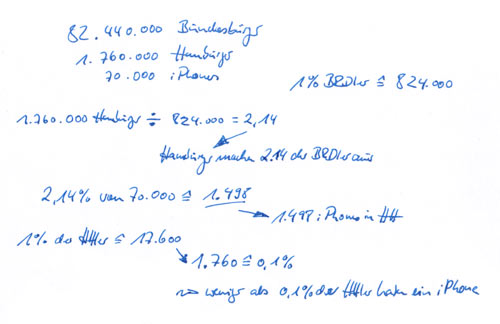 82.440.000 Bundesbürger
1.760.000 Hamburger
70.000 iPhones
1% BRDler ≙ 824.000
1.760.000 Hamburger ÷ 824.000 = 2,14
Hamburger machen 2.14 der BRDler aus
2,14% von 70.000 ≙ 1.498
1.498 iPhones in HH
1% der HHler ≙ 17.600
1.760 ≙ 0,1%
~> weniger als 0,1% der HHler haben ein iPhone